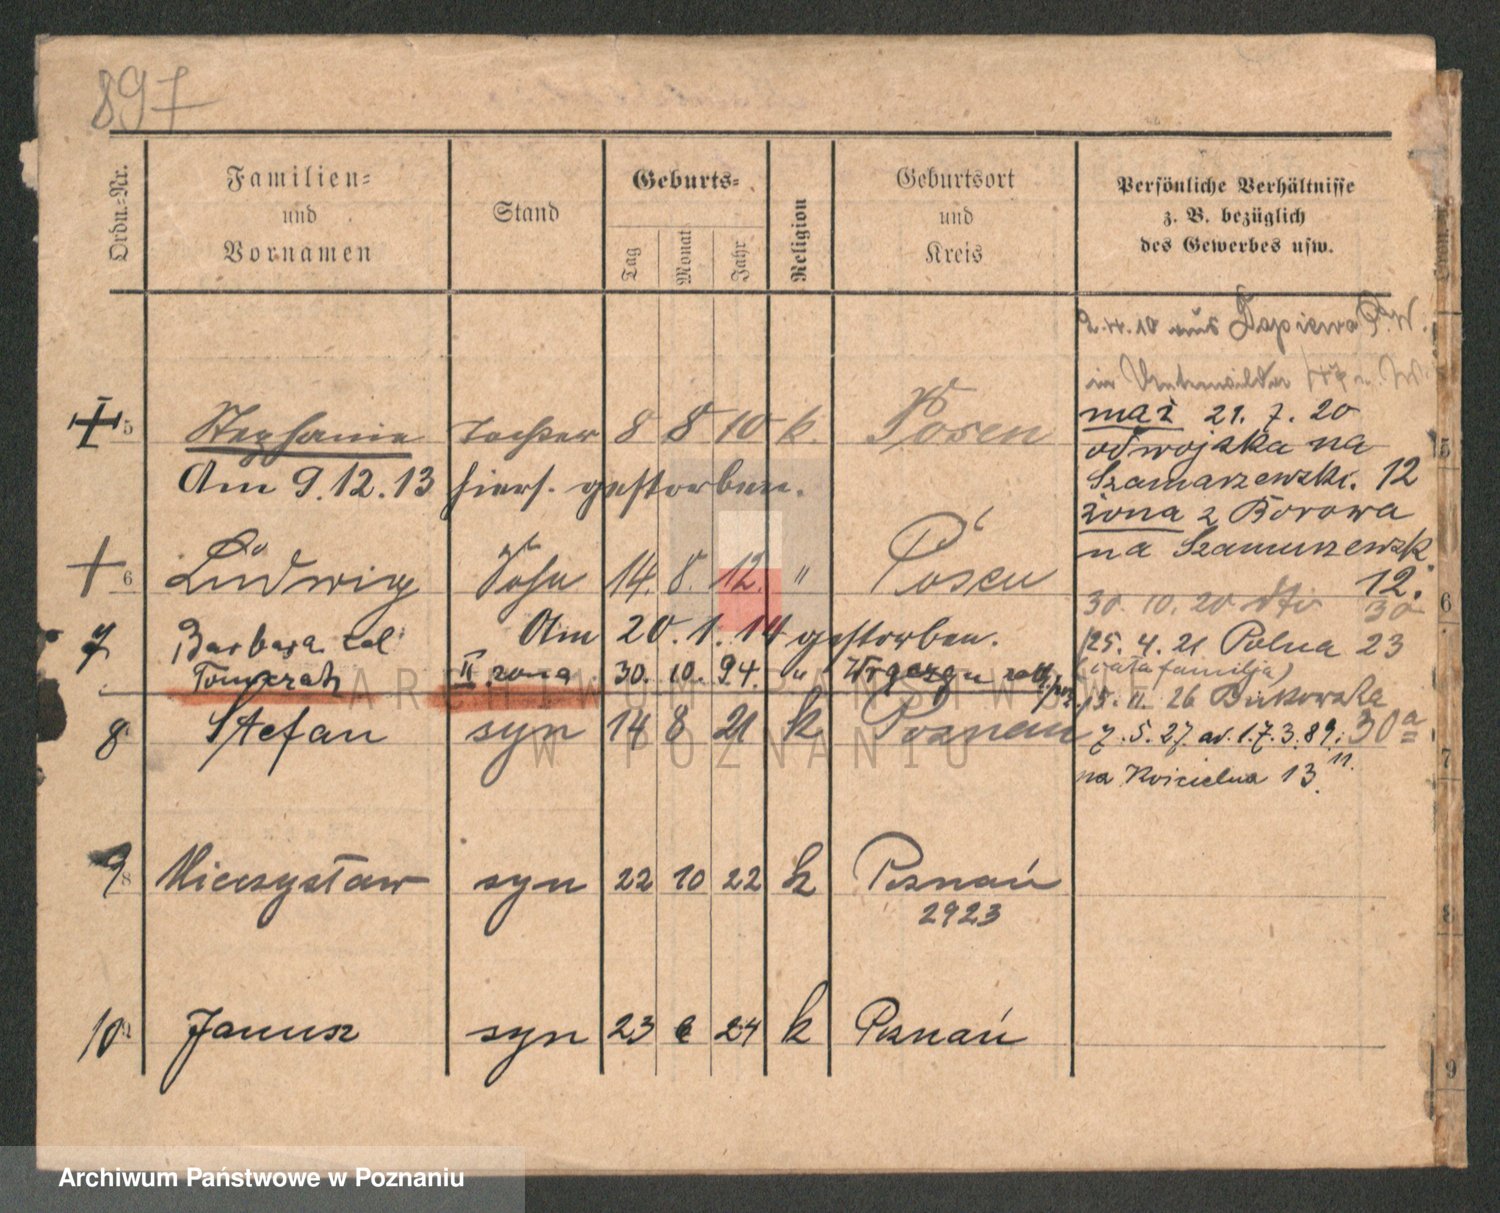 897
Ordn.=Nr.
Familien=
und
Vornamen
Stand
Geburts=
Tag
Monat
Jahr
Religion
Geburtsort
und
Kreis
Persönliche Verhältnisse
z. B. bezüglich
des Gewerbes usw.
2.4.10 aus Dopiewo P.W.
in
5 Stephanie Tochter 8 8 10 k. Posen
Am 9.12.13 hiers. gestorben.
6 Ludwig Sohn 14. 8. 12. " Posen
Am 20.1.14 gestorben.
7 Barbara
II żona 30. 10. 94. "
8 Stefan syn 14 8 21 k Poznań
9 8 Mieczysław syn 22 10 22 k Poznań
2923
10 Janusz syn 23 6 24 k Poznań
mąż 21.7.20
od wojska na
Szamarzewski. 12
żona z Borowa
na Szamarzewsk
12.
30.10.20 dto 30
25.4.21 Polna 23
(cała familja)
15.11.26 Bukowska
30a
7.5.27 av. 1.7.3.89.
na Kościelna 13
11.
5
6
7
8
9
ARCHIWUM PAŃSTWOWE
W POZNANIU
Archiwum Państwowe w Poznaniu